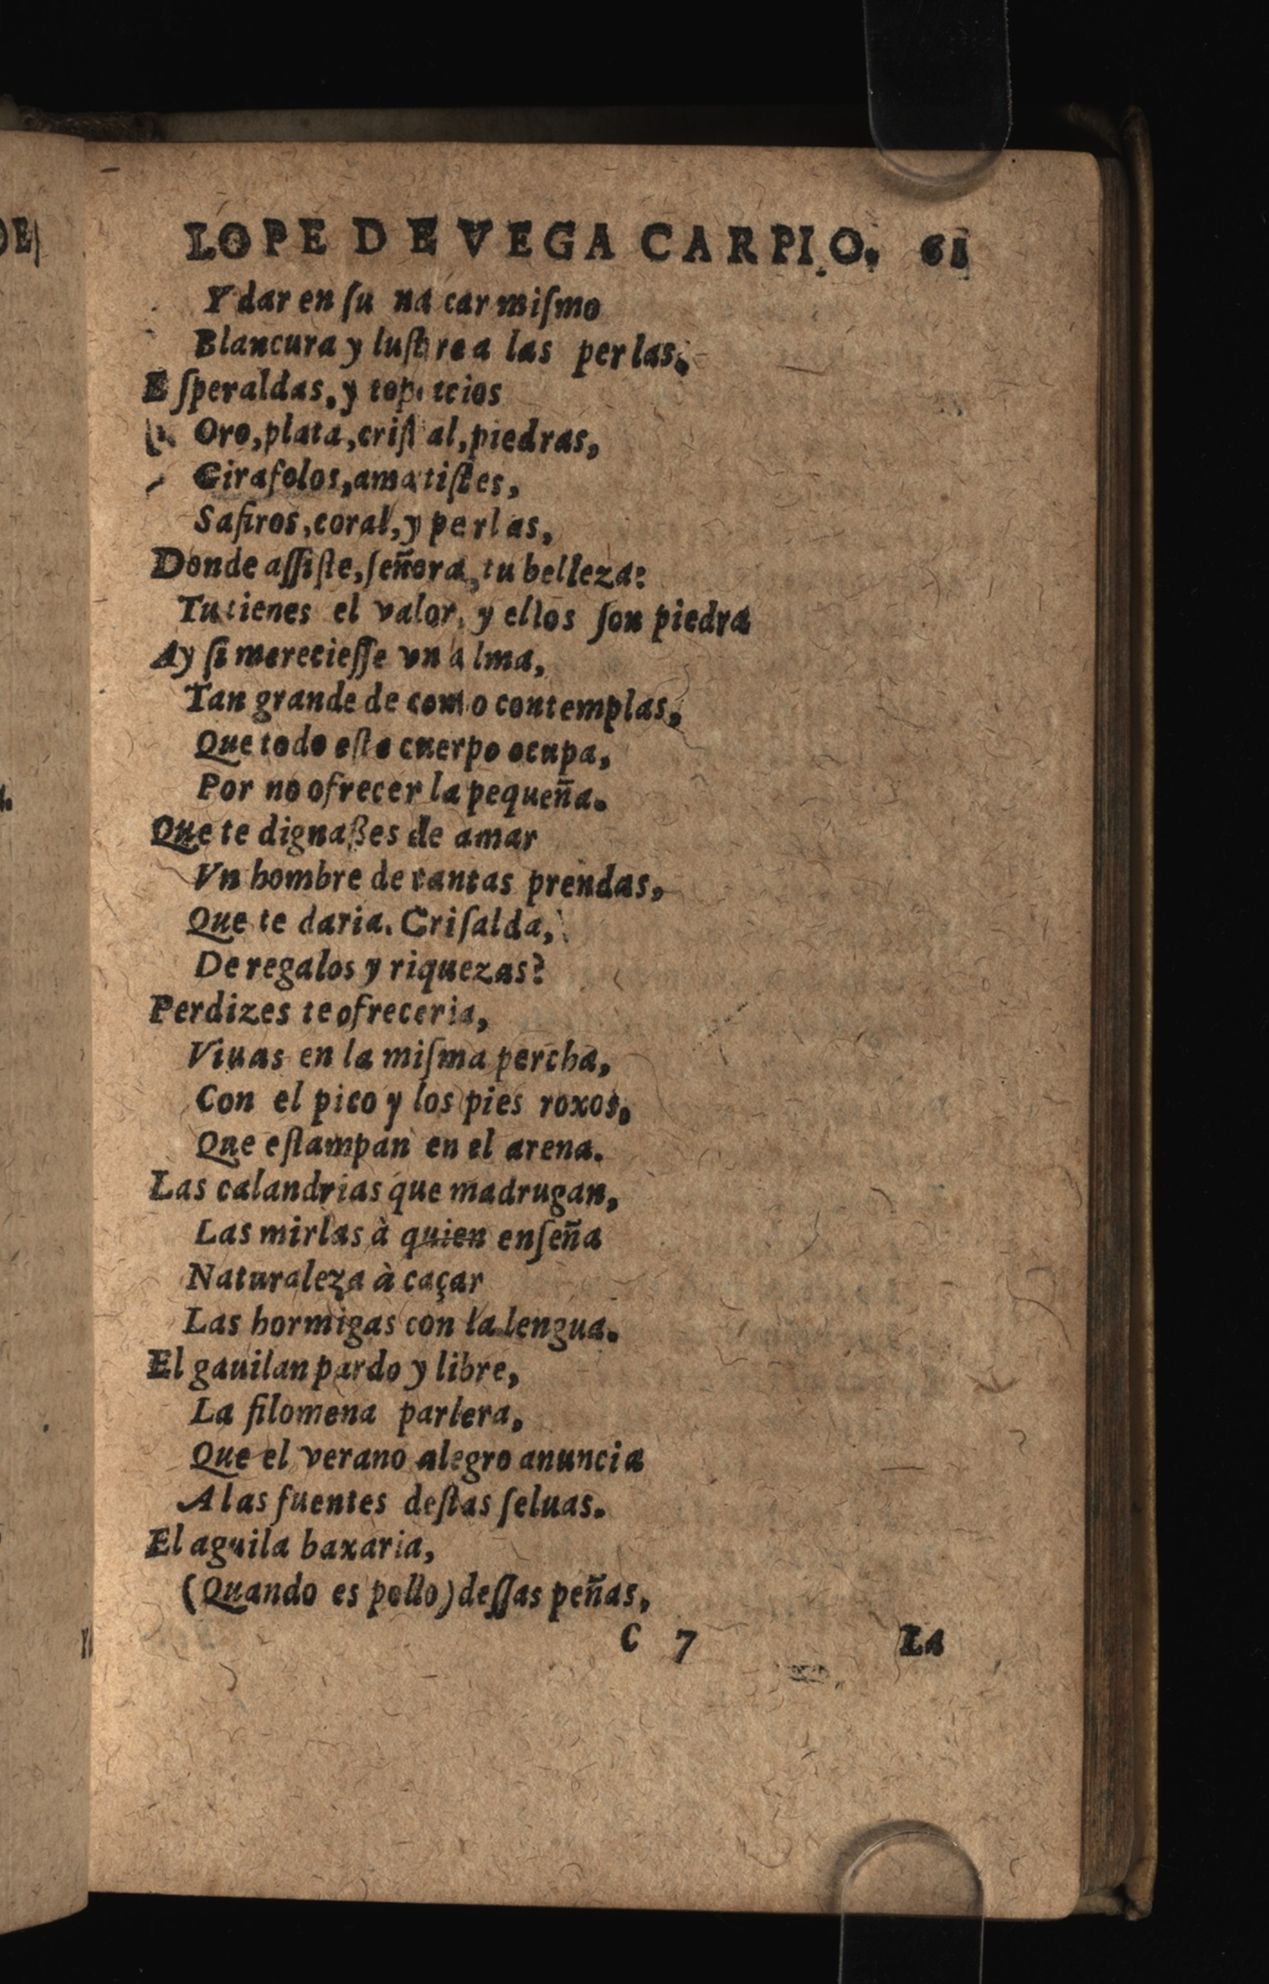 LOPE DE VEGA CARPIO. 61
Y dar en ſu na car miſmo
Blancura y luſtre a las perlas.
Eſperaldas, y topacios
Oro, plata, criſtal, piedras,
Girafolos, amatiſtes,
Safiros, coral, y perlas,
Donde aſſiſte, ſeñora, tu belleza:
Tu tienes el valor, y ellos ſon piedra
Ay ſi merecieſſe vn alma,
Tan grande de como contemplas,
Que todo eſte cuerpo ocupa,
Por no ofrecer la pequeña.
Que te dignaßes de amar
Vn hombre de tantas prendas,
Que te daria. Criſalda,
De regalos y riquezas?
Perdizes te ofreceria,
Viuas en la miſma percha,
Con el pico y los pies roxos,
Que eſtampan en el arena.
Las calandrias que madrugan,
Las mirlas à quien enſeña
Naturaleza à caçar
Las hormigas con la lengua.
El gauilan pardo y libre,
La filomena parlera,
Que el verano alegro anuncia
A las fuentes deſtas ſeluas.
El aguila baxaria,
(Quando es pollo) deſſas peñas,
C 7 La